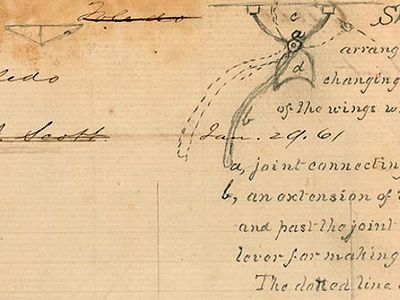 Toledo
ledo
Scott
c
a
d
b
arrang
changing
of the wings w
Jan. 29. 61
a, joint connecting
b, an extension of
and past the joint
lever for making
The dotted line